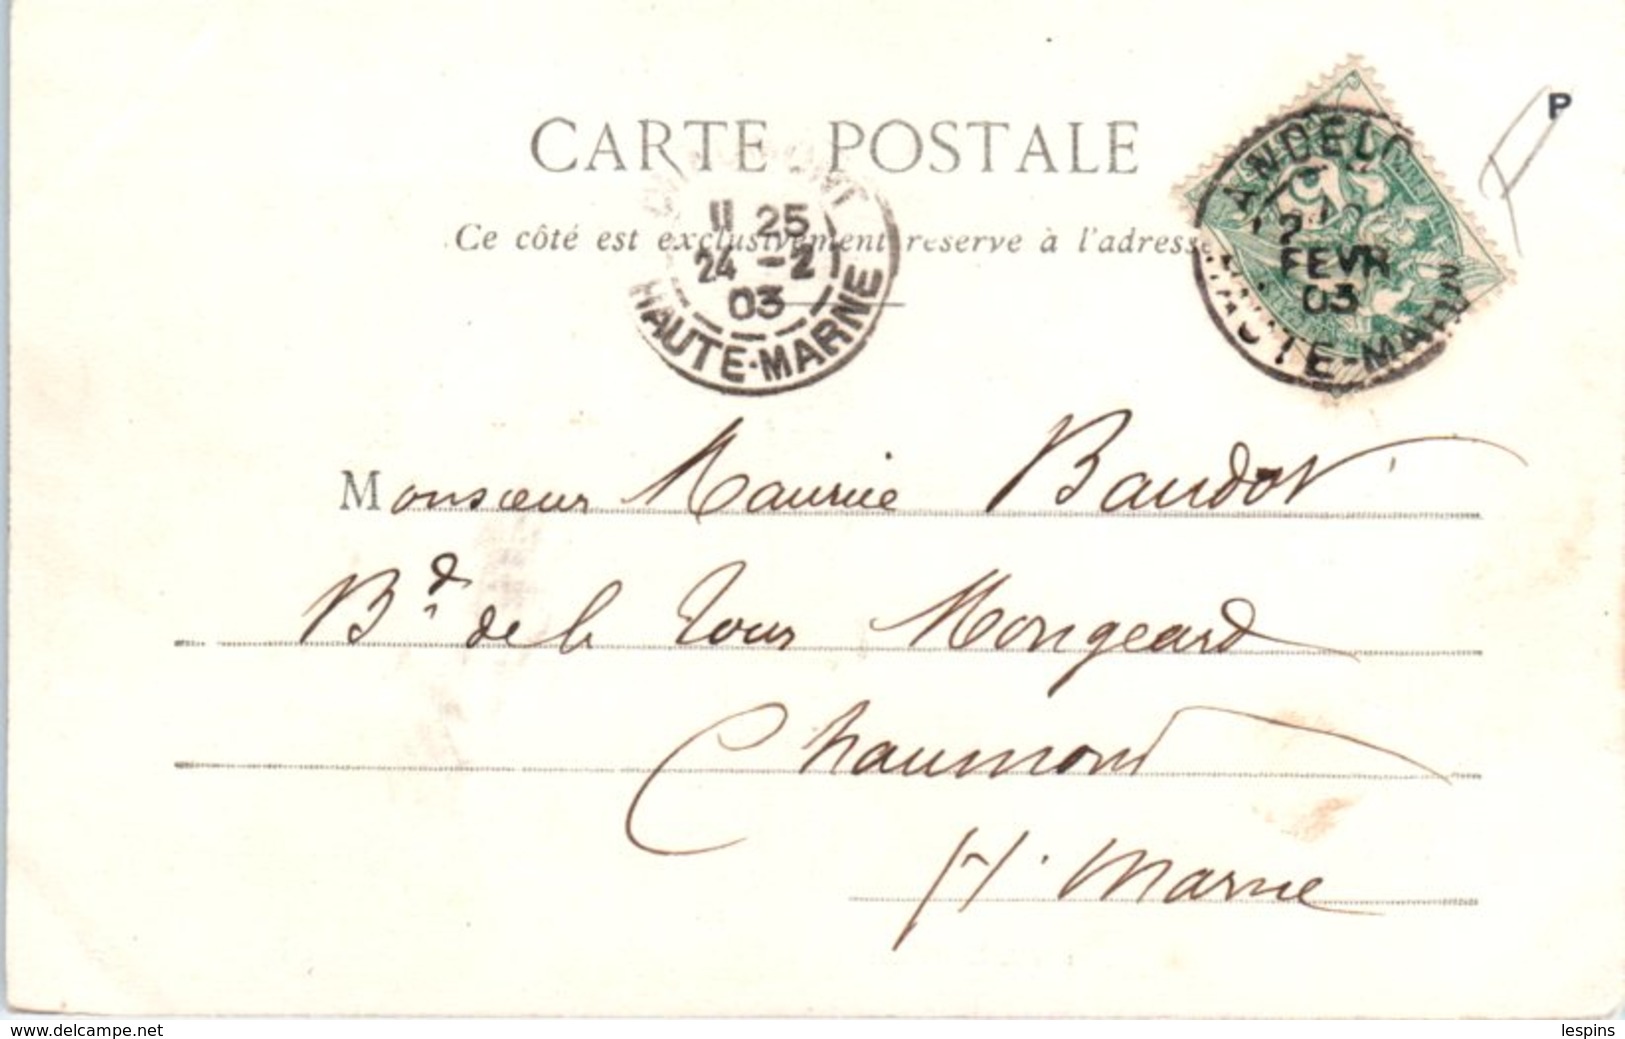 CARTE POSTALE
P
Ce côté est exclusivement réservé à l'adresse
11 25
24 -2
03
HAUTE-MARNE
ANDELO
FEVR
03
HAUTE-MARNE
Monsieur Maurice Baudot
Bd de la Tour Mongeard
Chaumont
Hte Marne
www.delcampe.net
lespins